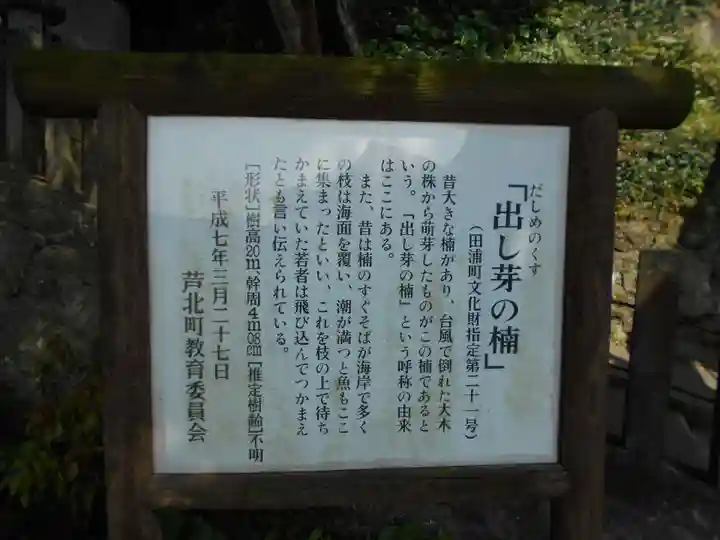 だしめのくす
「出し芽の楠」
（田浦町文化財指定第二十一号）
昔大きな楠があり、台風で倒れた大木
の株から萌芽したものがこの楠であると
いう。「出し芽の楠」という呼称の由来
はここにある。
また、昔は楠のすぐそばが海岸で多く
の枝は海面を覆い、潮が満つと魚もここ
に集まったといい、これを枝の上で待ち
かまえていた若者は飛び込んでつかまえ
たとも言い伝えられている。
［形状］樹高20m、幹周4m08cm［推定樹齢］不明
平成七年三月二十七日
芦北町教育委員会